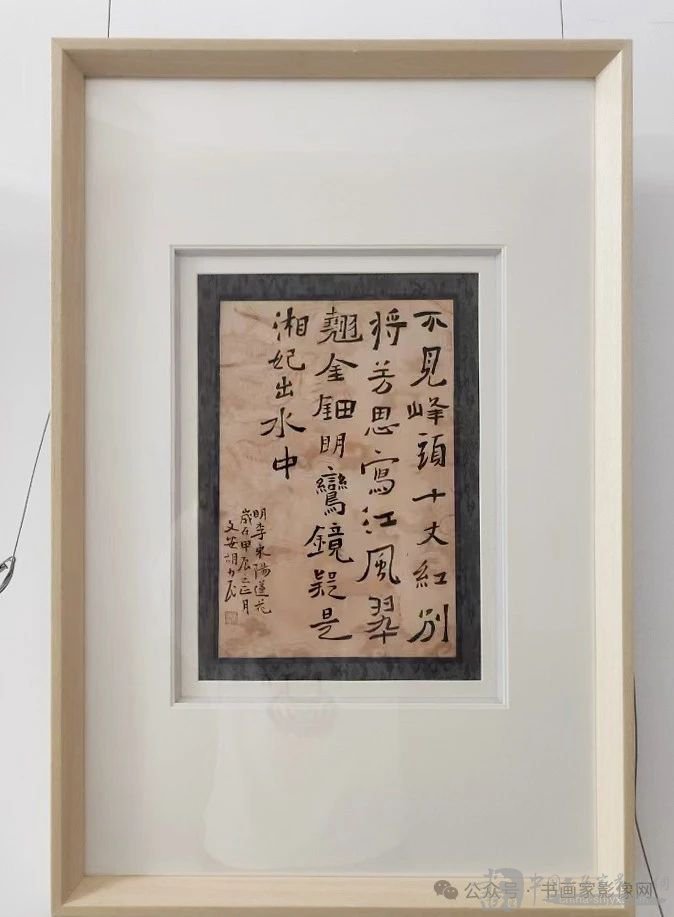 不見峰頭十丈紅別
將芳思寫江風翠
翹金鈿明鸞鏡疑是
湘妃出水中
明李東陽蓮花
歲在甲辰正月
文安胡
公众号·书画家影像网